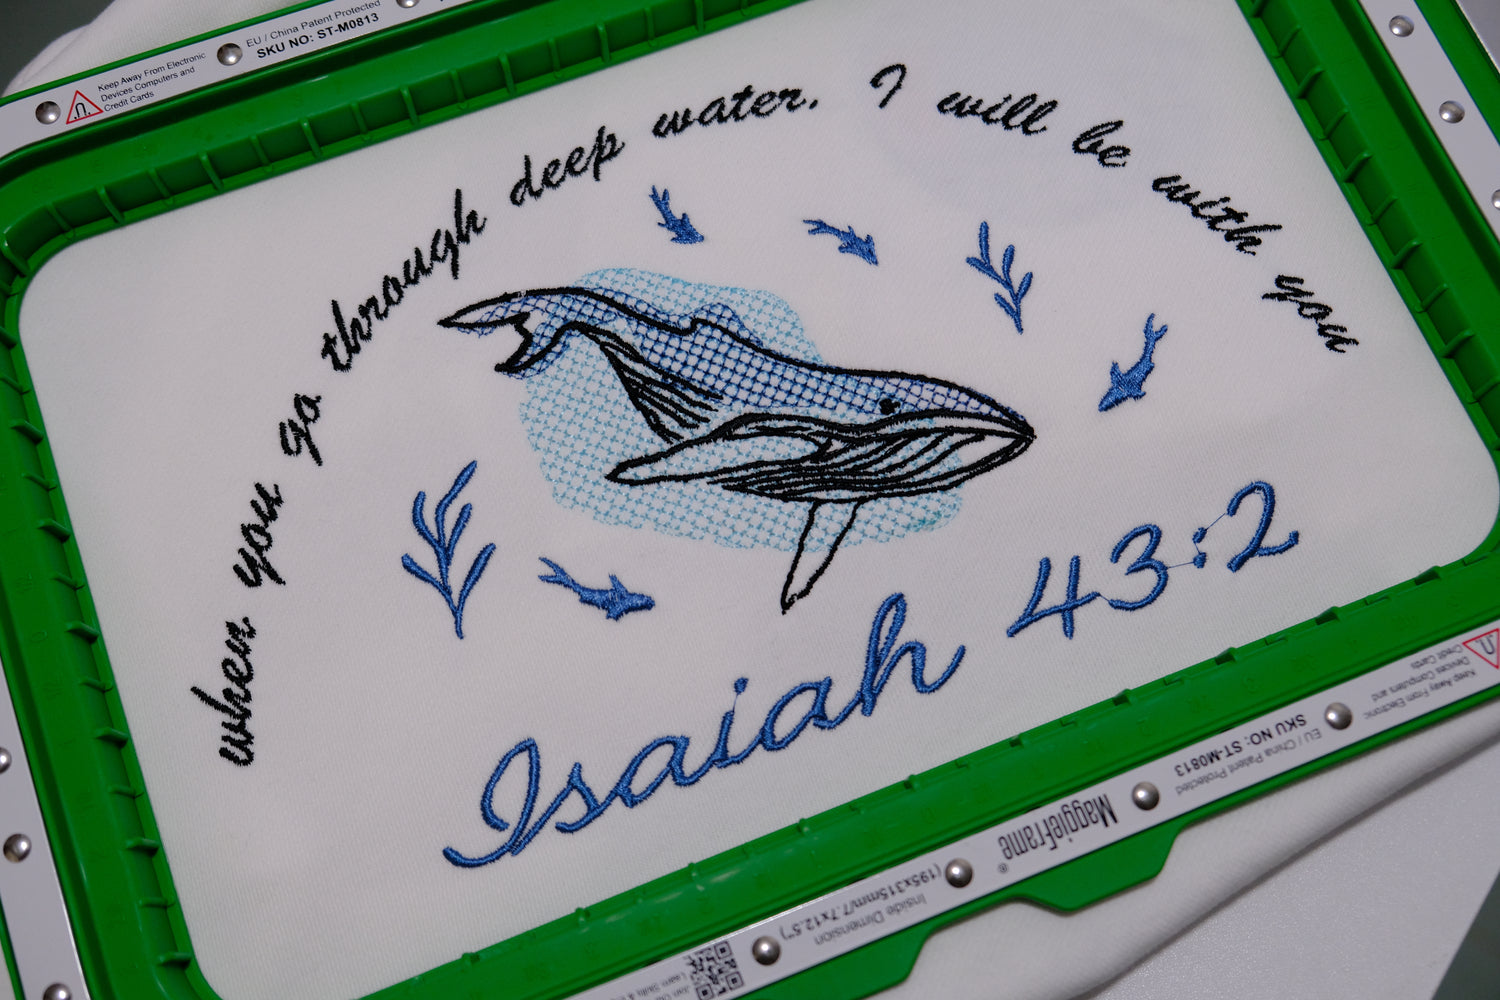 EU / China Patent Protected
SKU NO: ST-M0813
Keep Away From Electronic
Devices Computers and
Credit Cards
when you go through deep water. I will be with you
Isaiah 43:2
Keep Away From Electronic
Devices Computers and
Credit Cards
EU / China Patent Protected
SKU NO: ST-M0813
MaggieFrame®
Inside Dimension
(195x315mm/7.7x12.5")